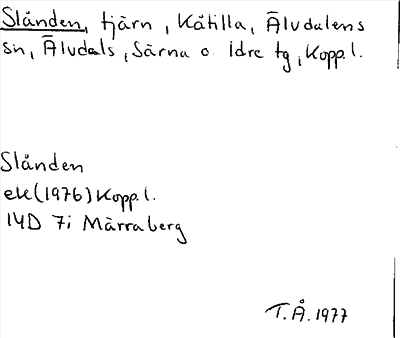 Slånden, tjärn, Kåtilla, Älvdalens
sn, Älvdals, Särna o. Idre tg, Kopp.l.
Slånden
ek (1976) Kopp.l.
14D 7i Märraberg
T.Å. 1977